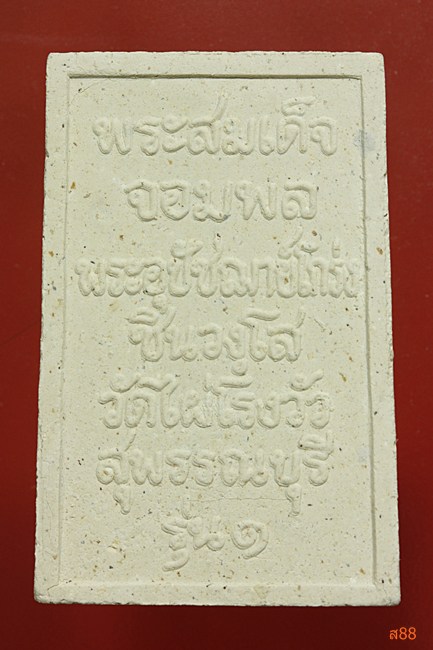 พระสมเด็จ
จอมพล
พระอุปัชฌาย์โกร่ง
ชินวงฺโส
วัดไผ่โรงวัว
สุพรรณบุรี
รุ่น๑
ส88